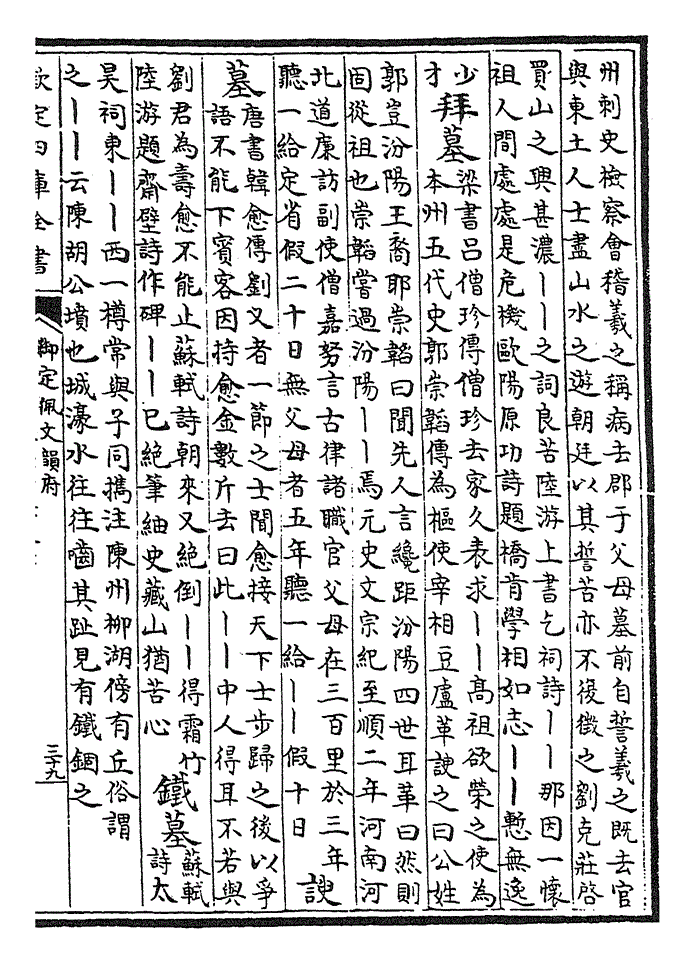 州刺史檢察會稽羲之稱病去郡于父母墓前自誓羲之既去官
與東土人士盡山水之遊朝廷以其誓苦亦不後徵之劉克莊啓
買山之興甚濃||之詞良苦陸游上書乞祠詩||那因一懷
祖人間處處是危機歐陽原功詩題橋肯學相如志||慙無逸
少
才
拜墓
梁書吕僧珍傳僧珍去家久表求||髙祖欲榮之使為
本州五代史郭崇韜傳為樞使宰相豆盧革諛之曰公姓
郭豈汾陽王裔耶崇韜曰聞先人言纔距汾陽四世耳革曰然則
固從祖也崇韜嘗過汾陽||焉元史文宗紀至順二年河南河
北道廉訪副使僧嘉努言古律諸職官父母在三百里於三年
聽一給定省假二十日無父母者五年聽一給||假十日
諛
墓
唐書韓愈傳劉乂者一節之士聞愈接天下士步歸之後以爭
語不能下賓客因持愈金數斤去曰此||中人得耳不若與
劉君為壽愈不能止蘇軾詩朝來又絕倒||得霜竹
陸游題齋壁詩作碑||已絕筆紬史藏山猶苦心
鐵墓
蘇軾
詩太
昊祠東||西一樽常與子同攜注陳州柳湖傍有丘俗謂
之||云陳胡公墳也城濠水往往嚙其趾見有鐵錮之
欽定四庫全書
御定佩文韻府
三十九